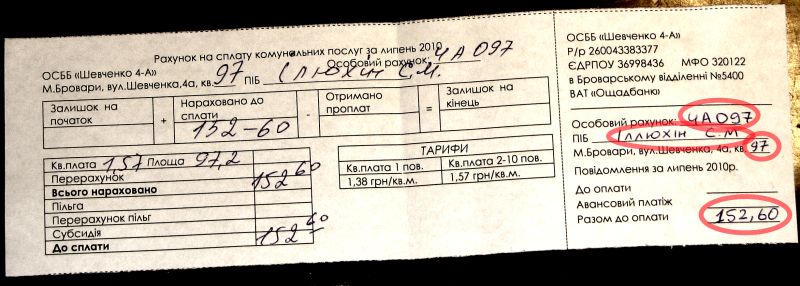 Рахунок на сплату комунальних послуг за липень 2010
ОСББ «Шевченко 4-А» Особовий рахунок: 4А097
М.Бровари, вул.Шевченка,4а, кв. 97 ПІБ Ілюхін С.М.
Залишок на початок + Нараховано до сплати 152-60 - Отримано проплат = Залишок на кінець
Кв.плата 1,57 Площа 97,2
Перерахунок
Всього нараховано 152 60
Пільга
Перерахунок пільг
Субсидія
До сплати 152 60
ТАРИФИ
Кв.плата 1 пов. Кв.плата 2-10 пов.
1,38 грн/кв.м. 1,57 грн/кв.м.
ОСББ «Шевченко 4-А»
Р/р 260043383377
ЄДРПОУ 36998436 МФО 320122
в Броварському відділенні №5400
ВАТ «Ощадбанк»
Особовий рахунок: 4А097
ПІБ Іллюхін С.М
М.Бровари, вул.Шевченка, 4а, кв. 97
Повідомлення за липень 2010р.
До оплати
Авансовий платіж
Разом до оплати 152,60